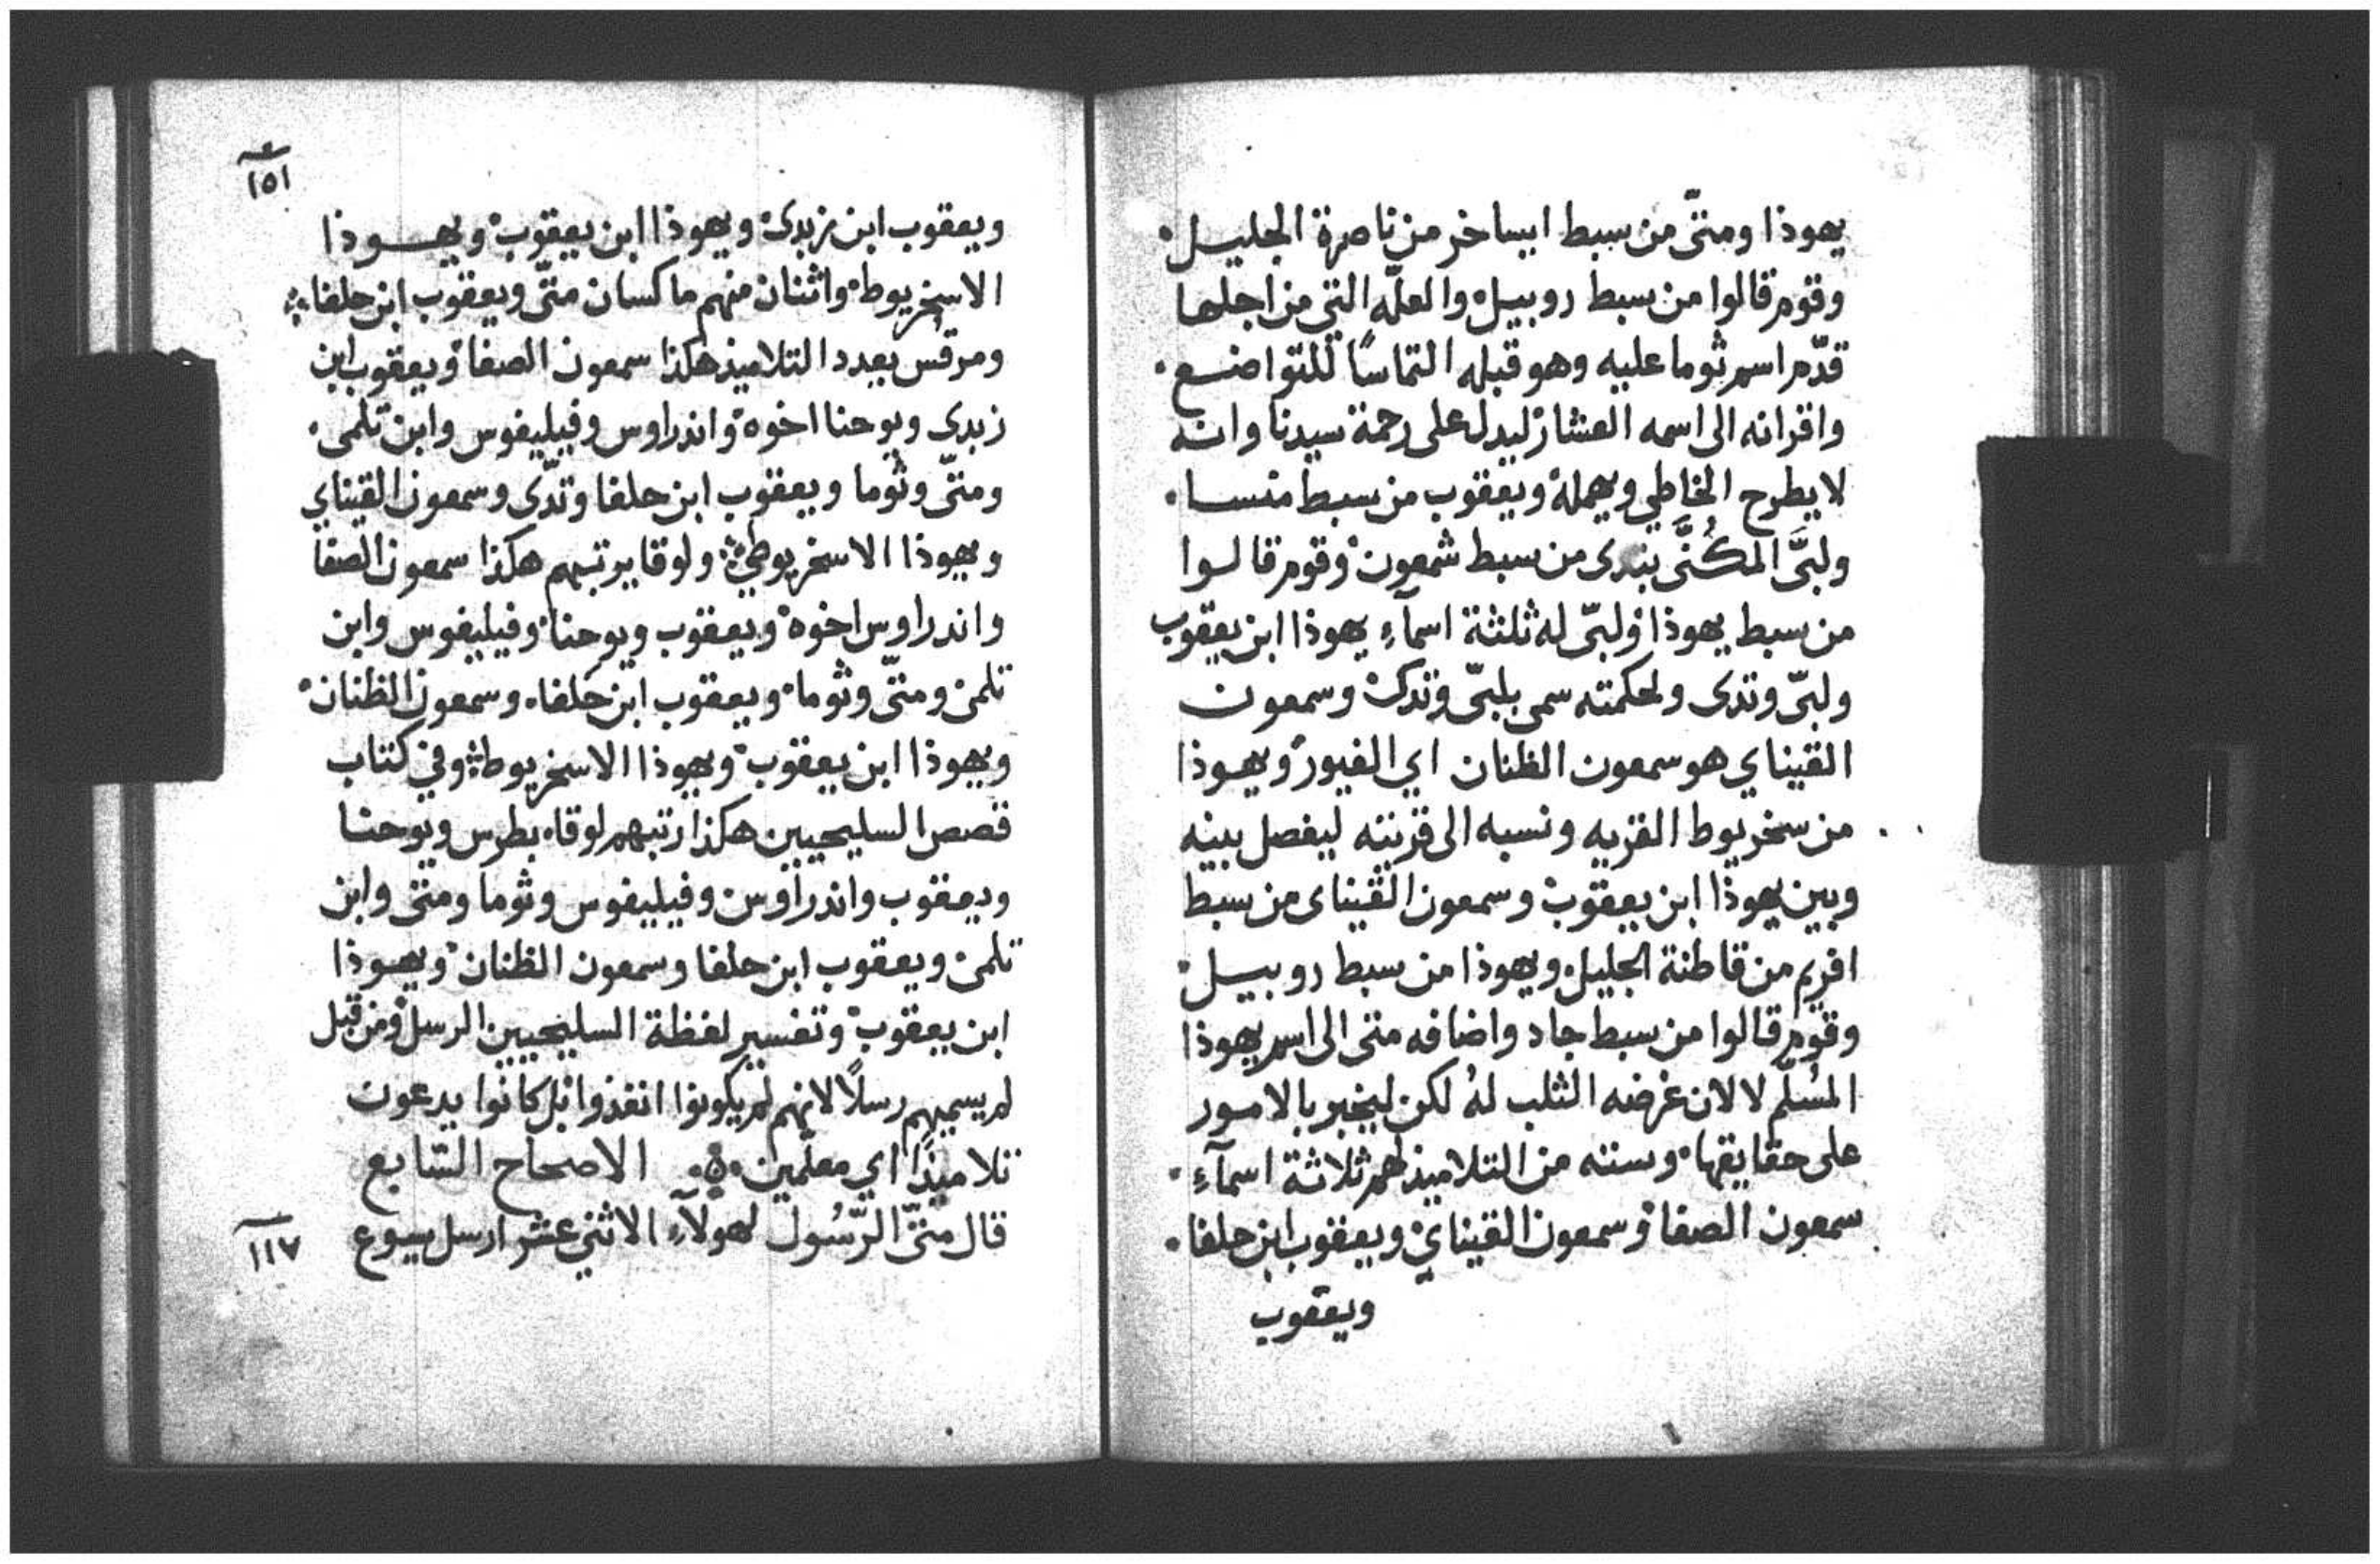 يهوذا ومتّى من سبط ايساخر من ناصرة الجليل.
وقوم قالوا من سبط روبيل والعلّه التي من اجلها
قدّم اسم ثوما عليه وهو قبله التماسًا للتواضع.
واقرانه الى اسمه العشار ليدل على رحمة سيدنا وانه
لا يطرح الخاطي ويهمله ويعقوب من سبط منسا.
ولبَّى المكُنَّى بتدى من سبط شمعون وقوم قالوا
من سبط يهوذا ولبّى له ثلثة اسمآء يهوذا ابن يعقوب
ولبّى وتدى ولحكمته سمى بلبّى وتدى وسمعون
القيناي هو سمعون الظنان اي الغيور ويهوذا
من سخريوط القريه ونسبه الى قريته ليفصل بينه
وبين يهوذا ابن يعقوب وسمعون القيناى من سبط
افريم من قاطنة الجليل ويهوذا من سبط روبيل.
وقوم قالوا من سبط جاد واضافه متى الى اسم يهوذا
المسُلّم لا لان غرضه الثلب لهُ لكن ليخبر بالامور
على حقايقها وسته من التلاميذ لهم ثلاثة اسمآءِ.
سمعون الصفا وسمعون القيناي ويعقوب ابن حلفا.
ويعقوب
١٥١
ويعقوب ابن زبدى ويهوذا ابن يعقوب ويهوذا
الاسخريوط واثنان منهم ماكسان متّى ويعقوب ابن حلفا
ومرقس بعدد التلاميذ هكذا سمعون الصفا ويعقوب ابن
زبدى ويوحنا اخوه واندراوس وفيليفوس وابن تلمى.
ومتّى وثوما ويعقوب ابن حلفا وتدّى وسمعون القيناي
ويهوذا الاسخريوطي ولوقا يرتبهم هكذا سمعون الصفا
واندراوس اخوه ويعقوب ويوحنا وفيليفوس وابن
تلمى ومتّى وثوما ويعقوب ابن حلفا وسمعون الظنان
ويهوذا ابن يعقوب ويهوذا الاسخريوط وفي كتاب
قصص السليحيين هكذا رتبهم لوقا بطرس ويوحنا
ويعقوب واندراوس وفيليفوس وثوما ومتى وابن
تلمى ويعقوب ابن حلفا وسمعون الظنان ويهوذا
ابن يعقوب وتفسير لفظة السليحيين الرسل ومن قبل
لم يسميهم رسلًا لانهم لم يكونوا انفذوا بل كانوا يدعون
تلاميذًا اي معلّمين الاصحاح السّابع
قال متّى الرّسُول لهولآءِ الاثني عشر ارسل يسوع
١١٧